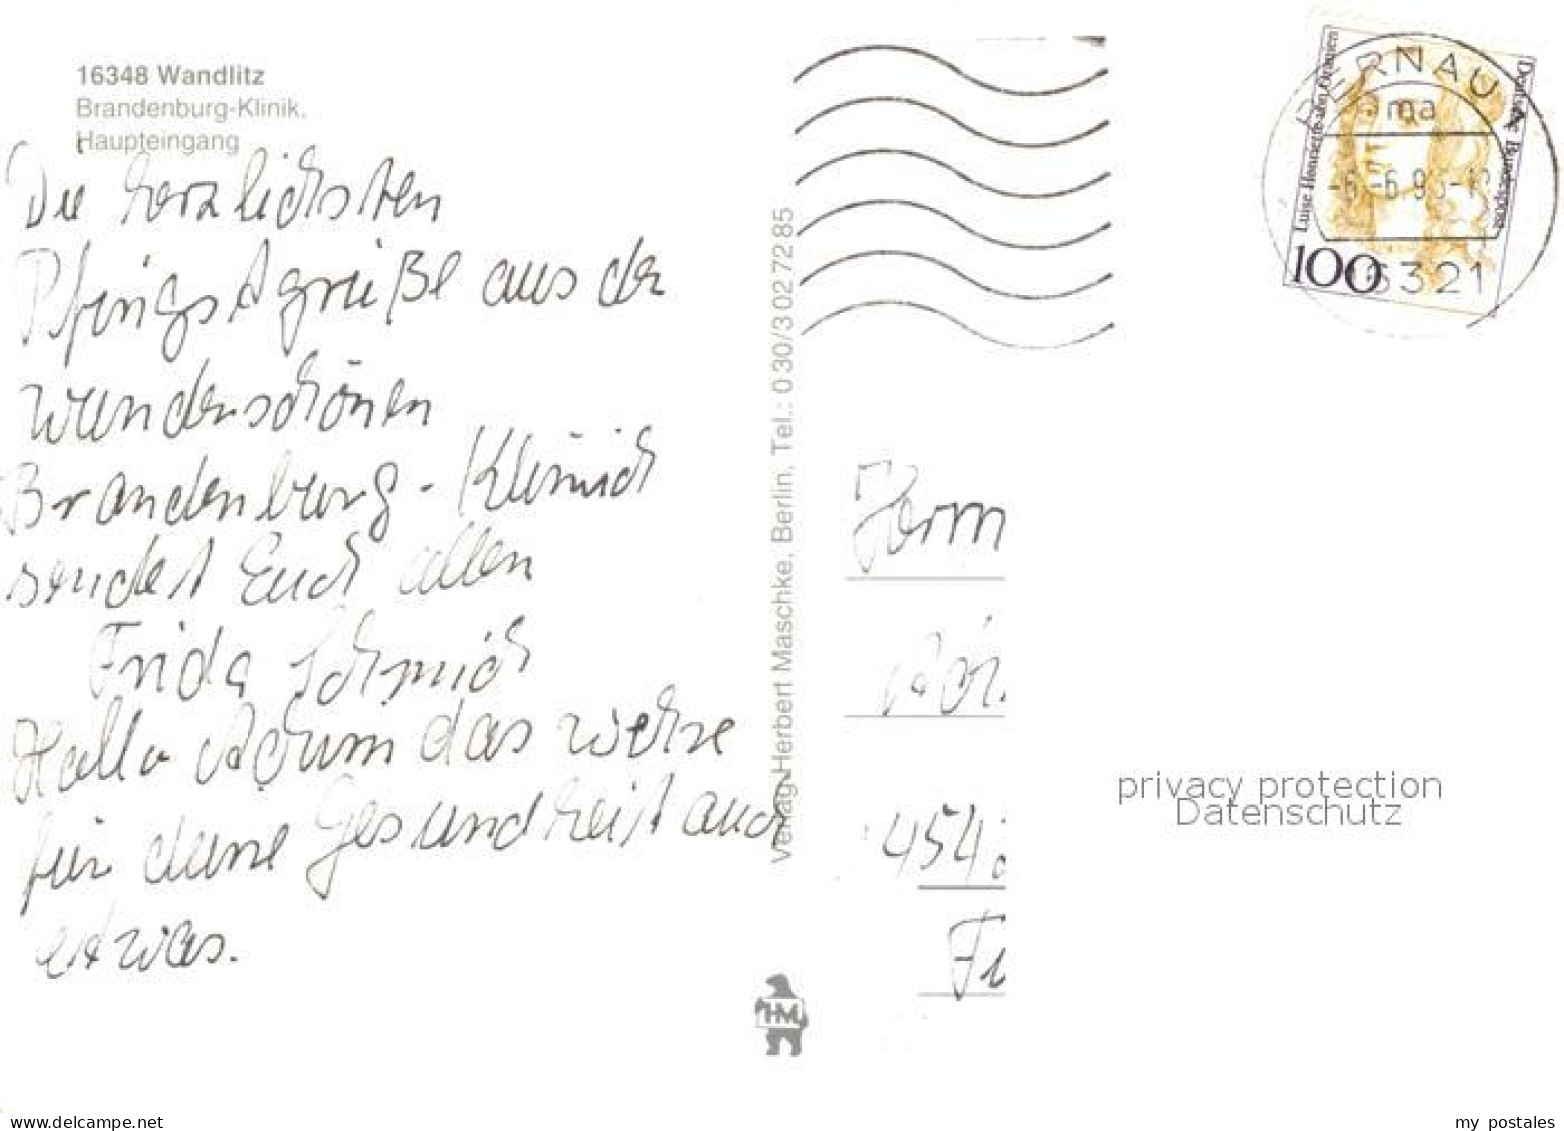 16348 Wandlitz
Brandenburg-Klinik,
Haupteingang
Die herzlichsten
Pfingstgrüße aus der
wunderschönen
Brandenburg-Klinich
sendet Euch allen
Frida Schmich
Hallo das wehre
für deine Gesundheit auch
etwas.
Verlag Herbert Maschke, Berlin, Tel.: 030/3 02 72 85
HM
BERNAU
16321
Luise Henriette von Oranien
Deutsche Bundespost
100
454
privacy protection
Datenschutz
www.delcampe.net
my postales